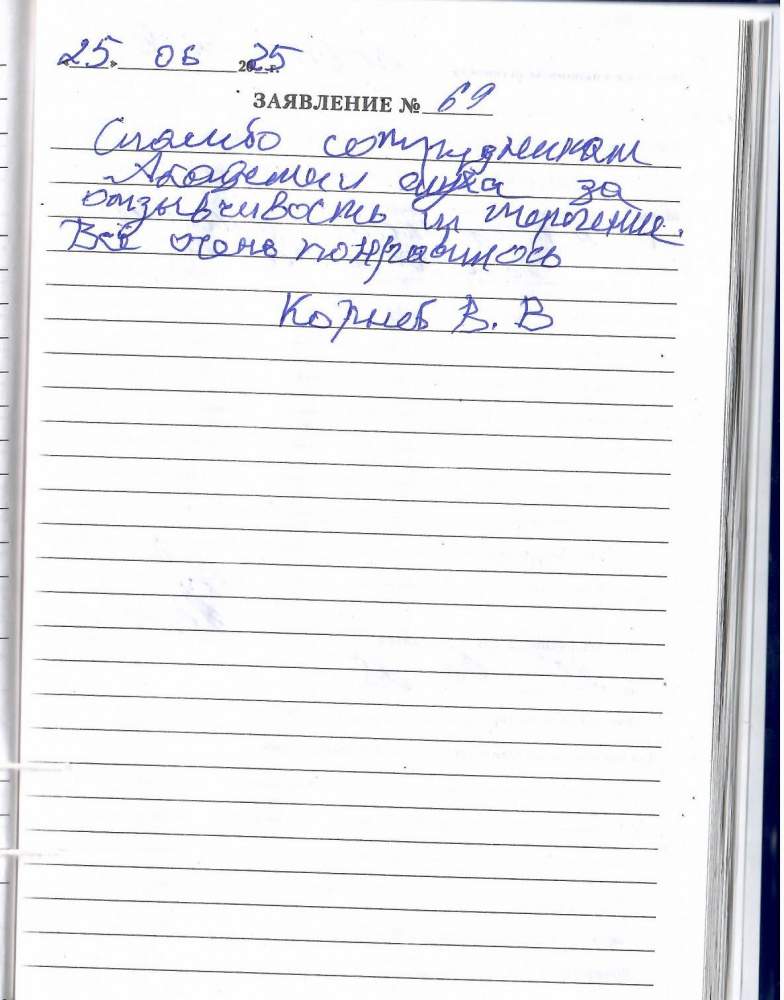 «25» 06 2025 г.
ЗАЯВЛЕНИЕ № 69
Спасибо сотрудникам
Академии слуха за
отзывчивость и терпение.
Всё очень понравилось
Корнев В. В